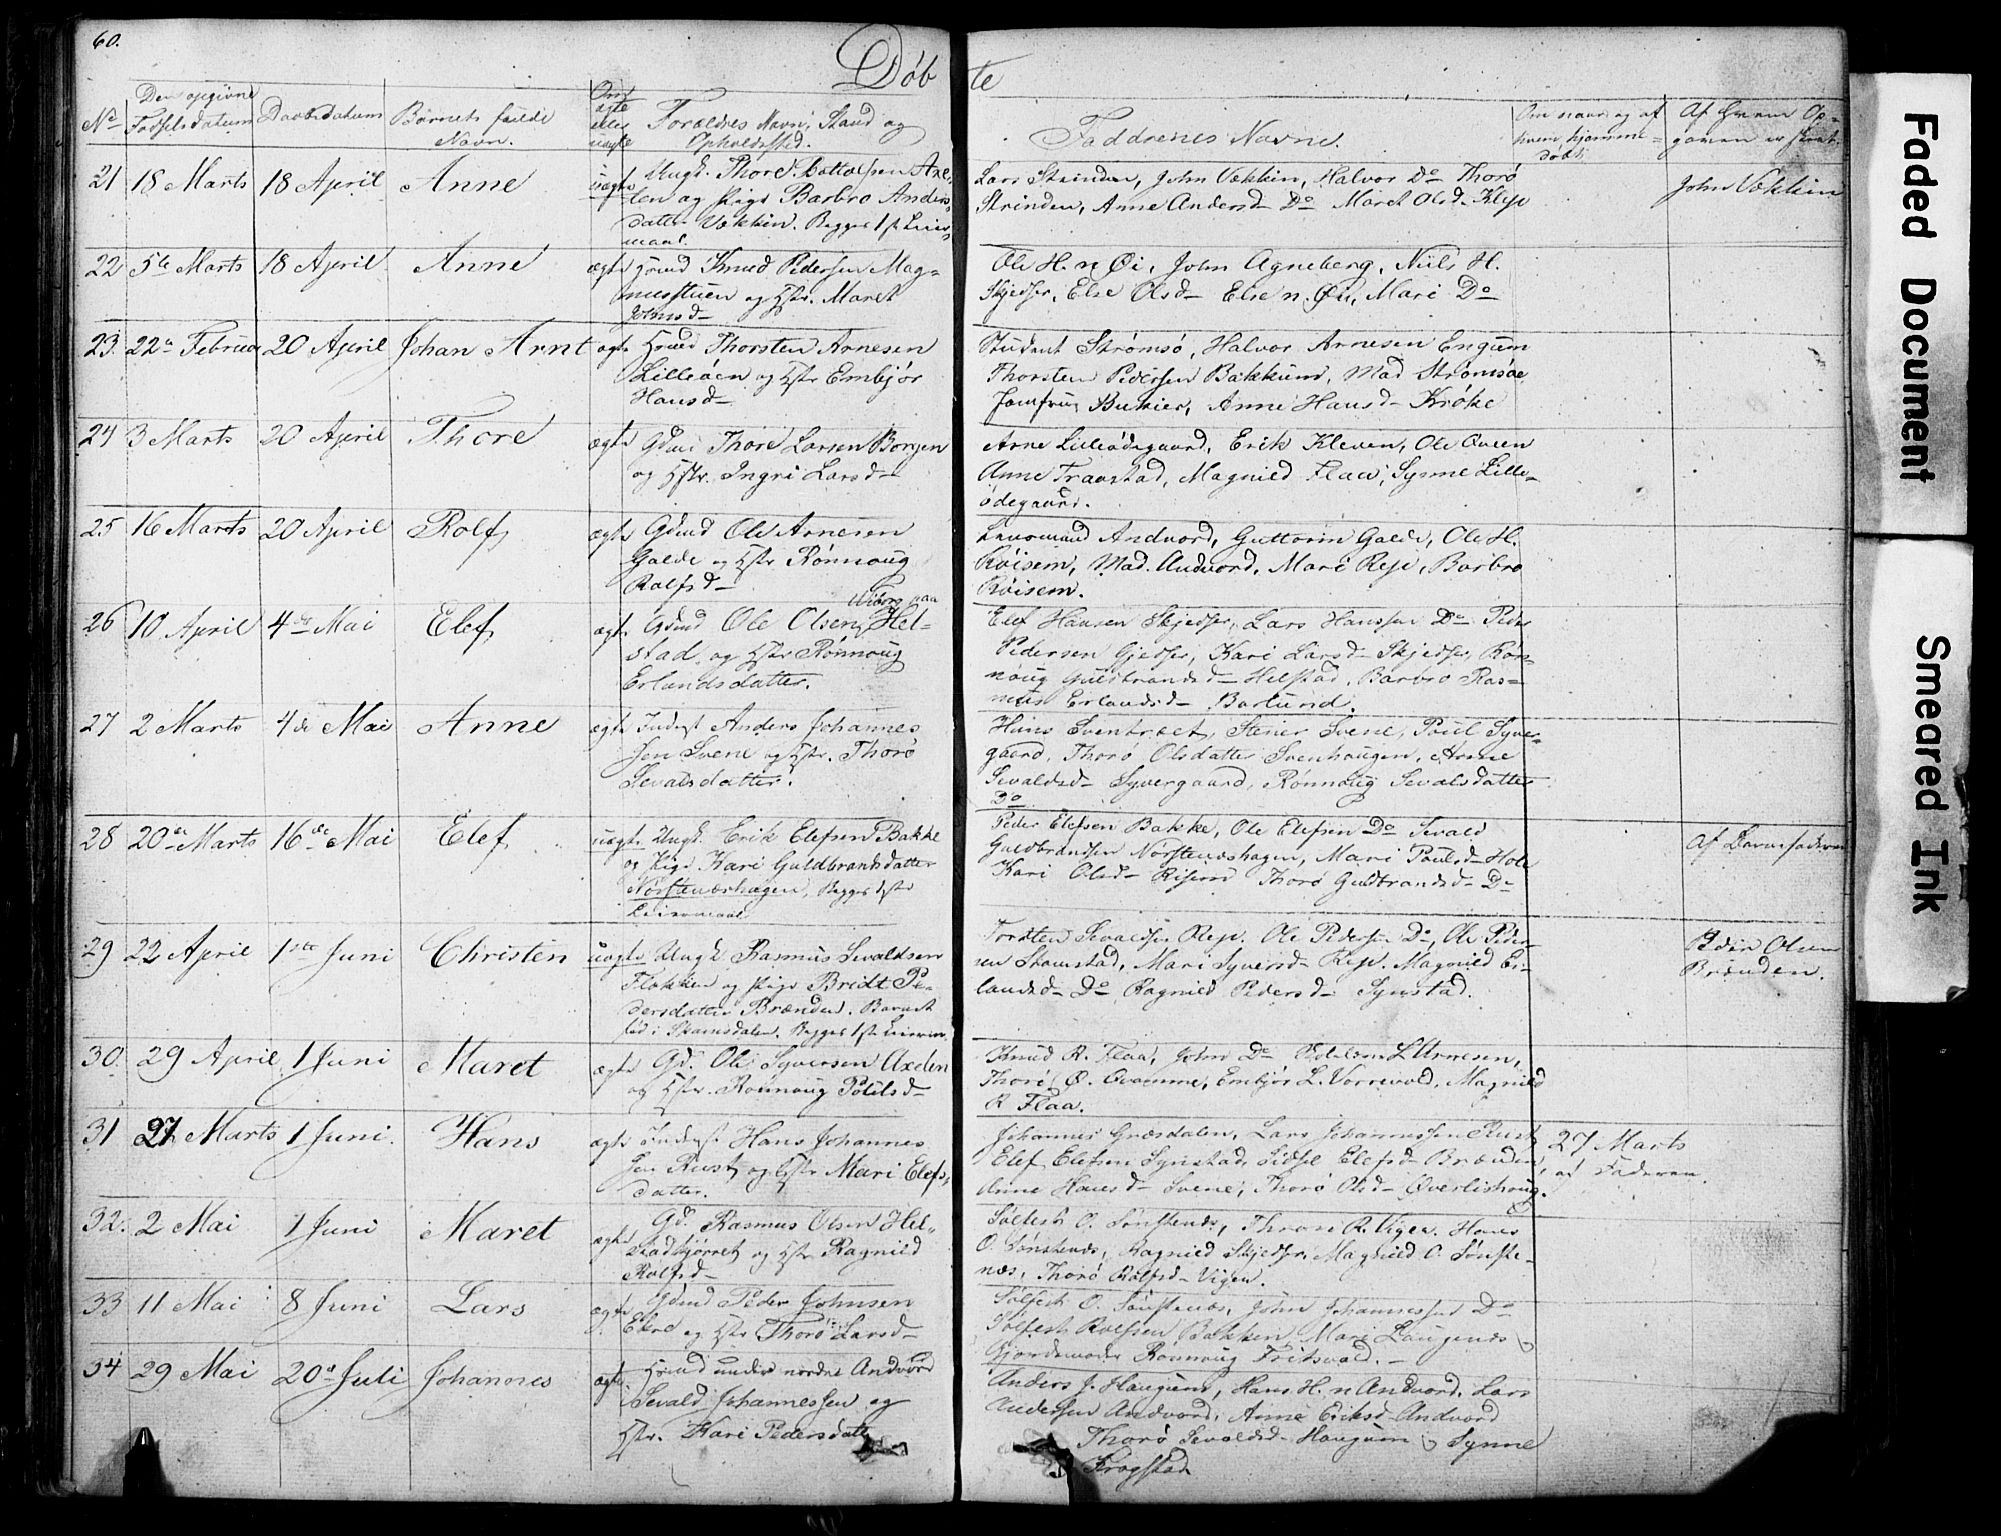 60.
Døb te
No
Den opgivne
Fødselsdatum
Daabsdatum
Barnets fulde
Navn.
Om
ægte
eller
uægte
Forældres Navn, Stand og
Opholdssted.
Faddrenes Navne.
Om naar og af
hvem hjemme-
døbt.
21 18 Marts 18 April Anne uægte
len og Pige Barbro Anders
datter Vækkin. Begges 1ste Leier-
maal.
Lars Strinden, John Vækkin, Halvor Do Thorø
Strinden, Anne Andersd- Do Maret Olsd- Klep
John Vækkin
22 5te Marts 18 April Anne ægte Hmd Knud Pedersen Mag-
nusstuen og Hstr. Maret
Johnsd-
Ole H. n Øi, John Agneberg, Niels H.
Skjedser, Else Olsd- Else n. Øi, Mari Do
23. 22de Februar 20 April Johan Arnt ægte Hmd Thorsten Arnesen
Lilleøen og Hstr Embjør
Hansd-
Student Strømsø, Halvor Arnesen Engum
Thorsten Pedersen Bakkum, Mad Strømsøe
Jomfru Bukier, Anne Hansd- Krøke
24 3 Marts 20 April Thore ægte Gdmd Thore Larsen Borgen
og Hstr. Ingri Larsd-
Arne Lilleødegaard, Erik Kleven, Ole Qveen
Anne Traastad, Magnild Flaa, Synne Lille-
ødegaard.
25 16 Marts 20 April Rolf ægte Gdmd Ole Arnesen
Galde og Hstr Rønnoug
Rolfsd-
Lensmand Andvord, Guttorm Galde, Ole H.
Røisem, Mad. Andvord, Mari Reje, Barbro
Røisem.
26 10 April 4de Mai Elef ægte Gdmd Ole Olsen Hel-
stad og Hstr Rønnoug
Erlandsdatter.
Elef Hansen Skjedser, Lars Hanssen Do Peder
Pedersen Gjedser, Kari Larsd- Skjedser, Røn-
noug Guldbrandsd- Helstad, Barbro Ras-
Erlandsd- Barlund.
27 2 Marts 4de Mai Anne ægte Inderst Anders Johannes
Sen Svene og Hstr. Thorø
Sevalsdatter.
Hans Sventræet, Stener Svene, Poul Syver-
gaard, Thorø Olsdatter Svenhaugen, Anne
Sevaldsd- Syvergaard, Rønnoug Sevalsdatter
Do
28 20de Marts 16de Mai Elef uægte Ungk. Erik Elefsen Bakke
og Pige Kari Guldbrandsdatter
Norstenæshagen, Begges 1ste
Leiermaal
Peder Elefsen Bakke, Ole Elefsen Do Sevald
Guldbrandsen Norstenæshagen, Mari Poulsd- Hole
Kari Olsd- Risem Thorø Guldbrandsd- Do
Af Barnefaderen
29 22 April 1ste Juni Christen uægte Ungk Rasmus Sevaldsen
Flakken og Pige Bridt Pe-
dersdatter Brænden. Barnet
fød i Stamsdalen. Begges 1ste Leierm.
Torsten Sevaldsen Reje. Ole Pedersen Do, Ole Peder-
sen Stamstad, Mari Syversd- Reje. Magnild Er-
landsd- Do Ragnild Pedersd- Synstad.
Olsen
Brænden.
30. 29 April 1 Juni Maret ægte Gd. Ole Syversen Axden
og Hstr. Rønnoug Poulsd-
Knud R. Flaa, John Do L Arnesen,
Thore Ø. Qvamme, Embjør L. Vorrevold, Magnild
R Flaa.
31 27 Marts 1 Juni. Hans ægte Inderst Hans Johannes
Sen Rust og Hstr Mari Elefs-
datter.
Johannes Græsdalen, Lars Johannessen Rust
Elef Elefsen Synstad, Sidsel Elefsd- Brænden,
Anne Hansd- Svene, Thorø Olsd- Øverlishoug.
27 Marts
af Faderen.
32. 2 Mai 1 Juni Maret ægte Gd. Rasmus Olsen Hel-
stadkjørret og Hstr Ragnild
Rolfsd-
Sølfest O. Sønstenæs, Thron R. Vigen. Hans
O. Sønstenæs, Ragnild Skjedser, Magnild O. Sønste-
næs, Thorø Rolfsd- Vigen.
33 11 Mai 8 Juni Lars ægte Gdmd Peder Johnsen
Ekre og Hstr Thorø Larsd-
Sølfest O. Sønstenæs, John Johannessen Do
Sølfest Rolfsen Bakken, Mari Laugenæs
Gjordemoder Rønnoug Fritsvold. -
34 29 Mai 20de Juli Johannes ægte Hmd under nordre Andvord
Sevald Johannessen og
Hstr. Kari Pedersdatter
Anders J. Haugum, Hans H. n Andvord, Lars
Andersen Andvord, Anne Eriksd- Andvord
Thorø Sevaldsd- Haugum Synne
Frogstad
Faded Document
Smeared Ink